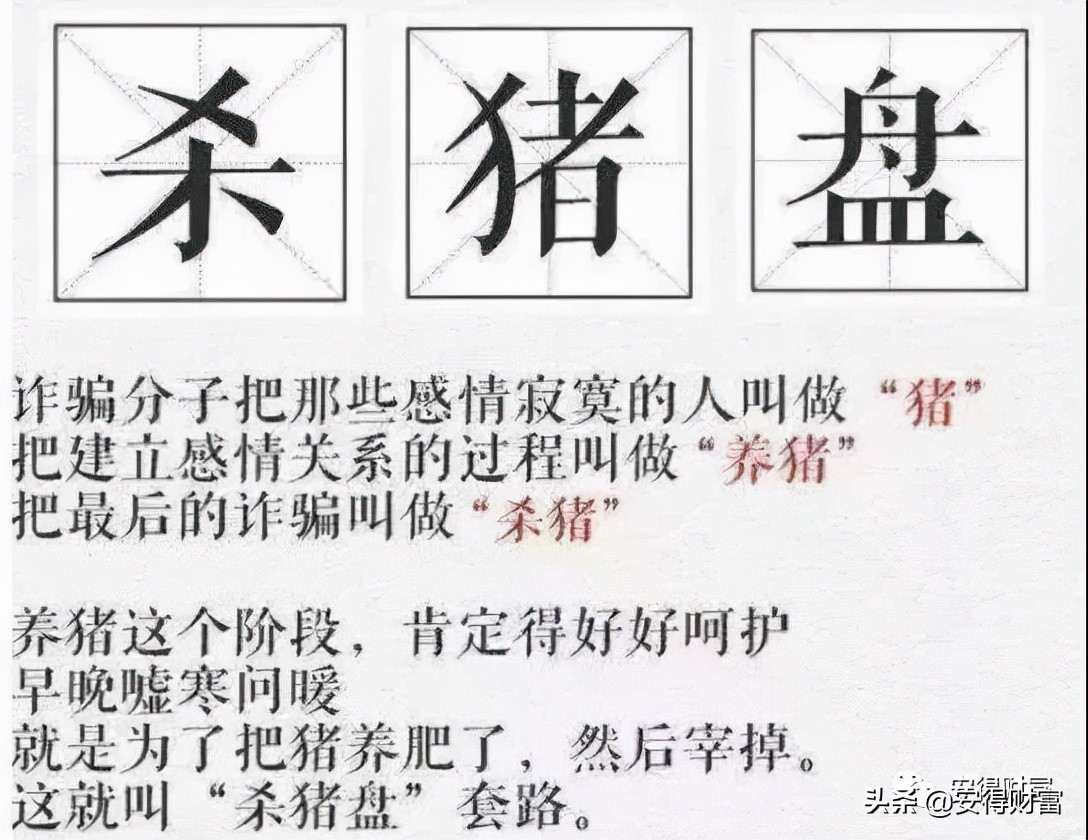 杀 猪 盘
诈骗分子把那些感情寂寞的人叫做“猪”
把建立感情关系的过程叫做“养猪”
把最后的诈骗叫做“杀猪”
养猪这个阶段，肯定得好好呵护
早晚嘘寒问暖
就是为了把猪养肥了，然后宰掉。
这就叫“杀猪盘”套路。
安得财富
头条 @安得财富